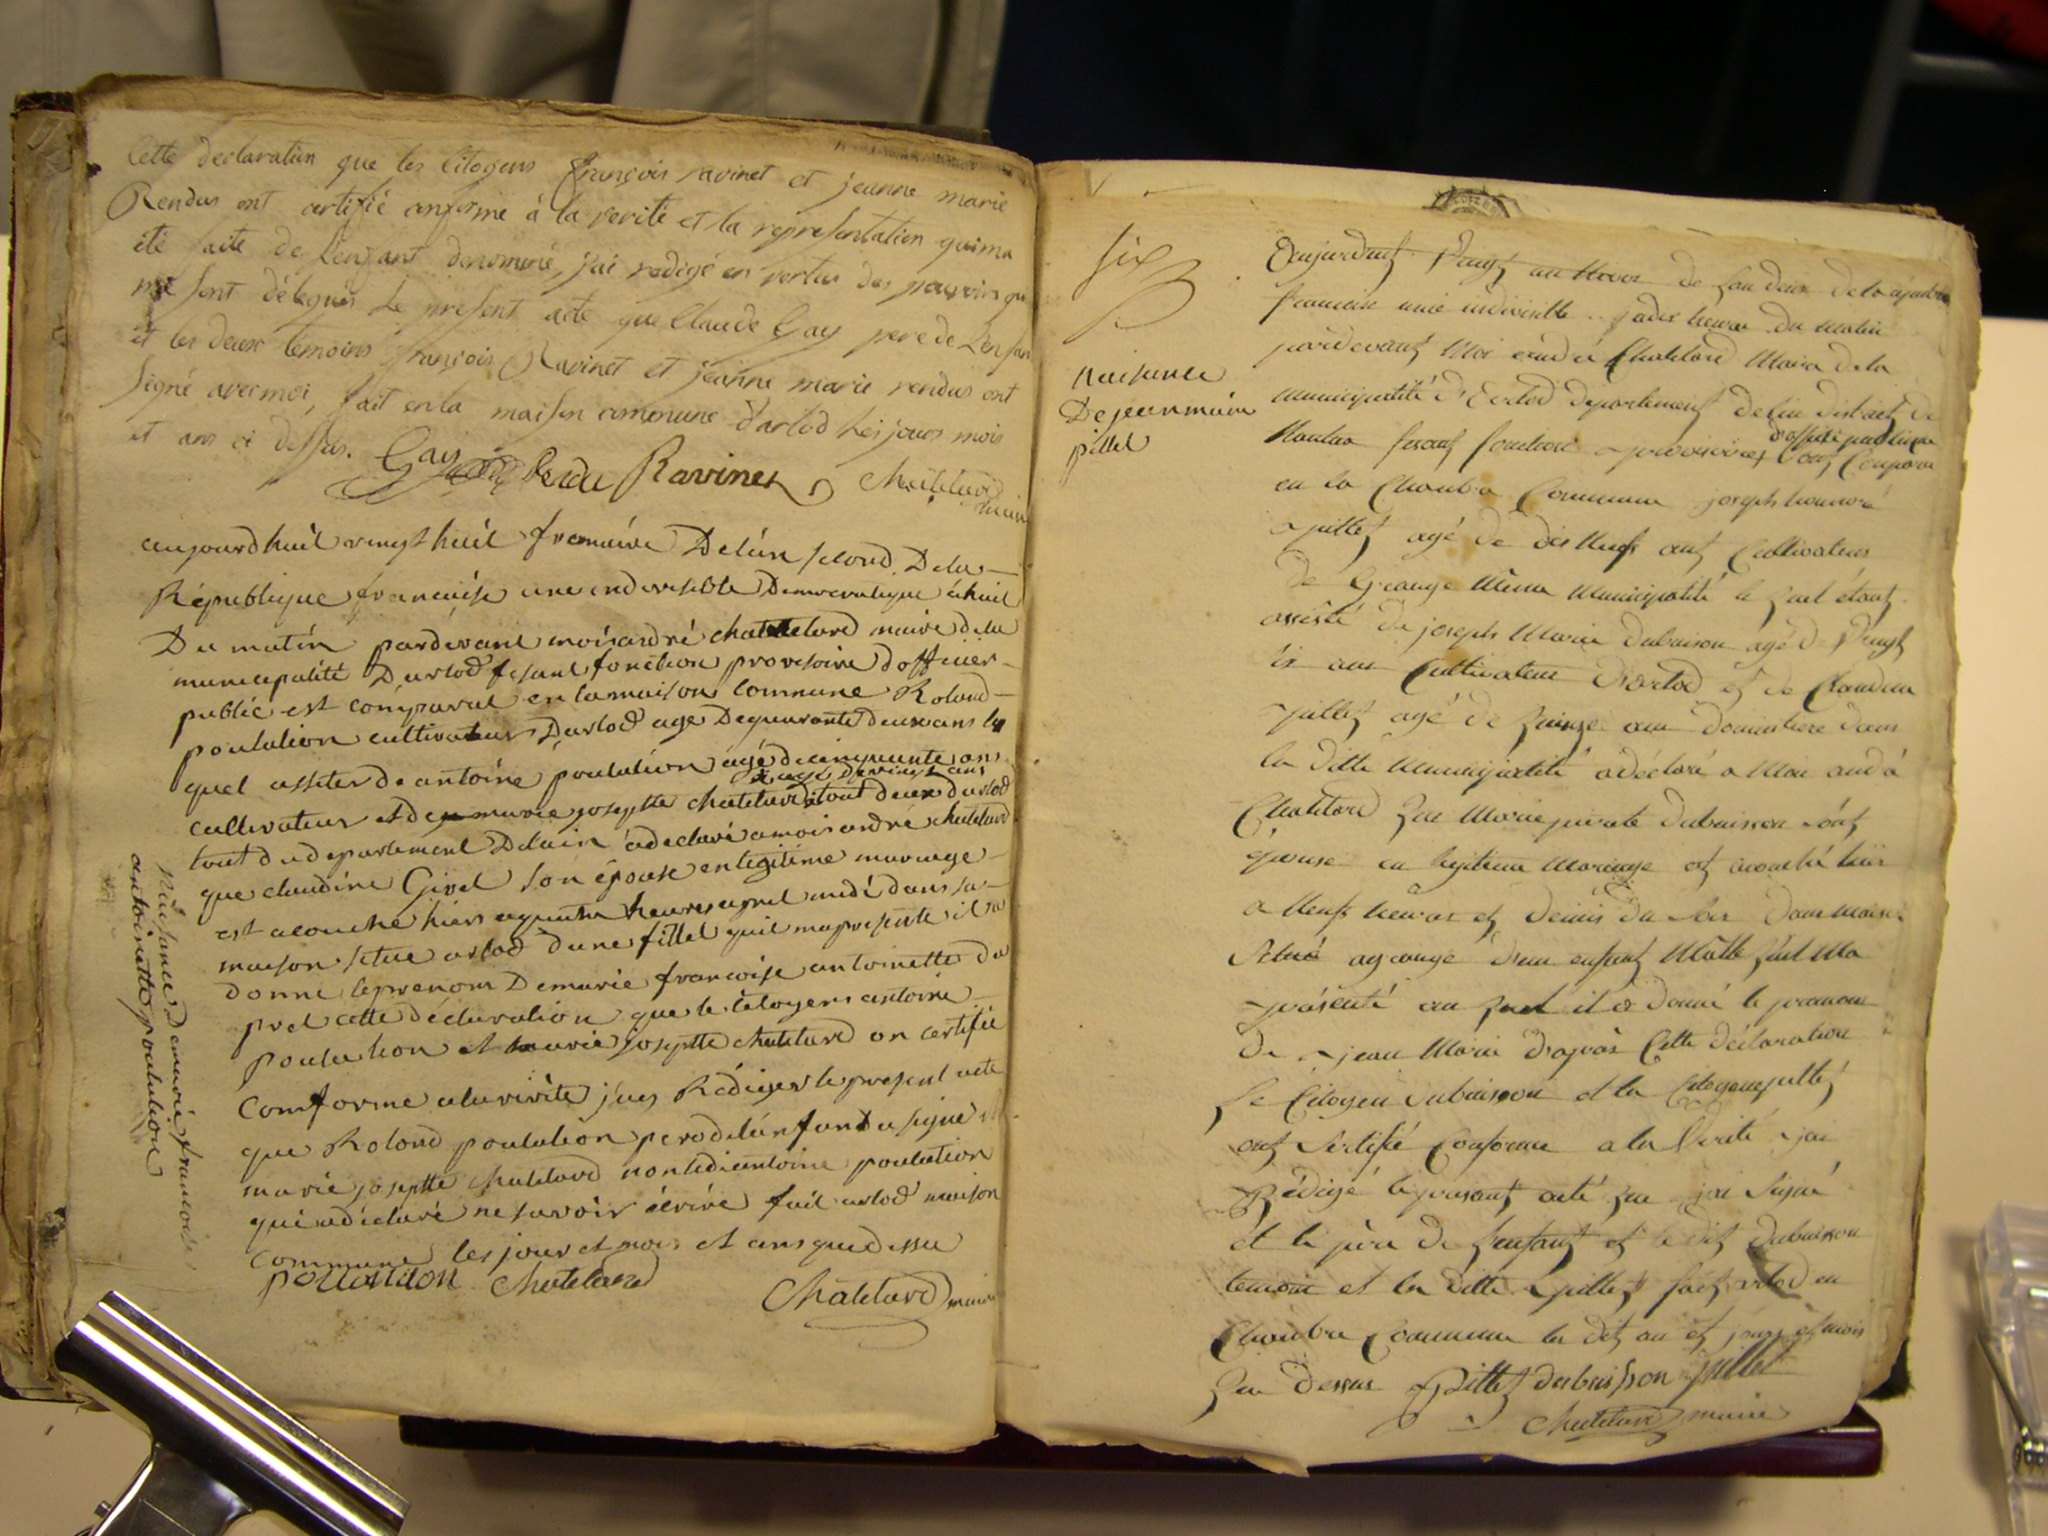 Cette declaration que les Citoyens François ravinet et jeanne marie
Rendus ont certifié conforme à la verité et la representation qui ma
été faite de L'enfant denommé, j'ai redigé en vertus des pouvoirs qui
me sont délegués Le present acte que Claude Gay pere de L'enfan
et les deux temoins françois Ravinet et jeanne marie rendus ont
signé avec moi, fait en la maison commune d'arlod les jours mois
et ans ci dessus. Gay Rendu Ravinet Chatelard
maire
aujourdhuit vingt huit fremaire De lún second De la
République francaise une endivisible Democratique à huit
Du matin pardevant moi andré chatelard maire de la
municipalité Darlod fesant fonction provisoire dofficier
public est comparut en la maison commune Rolond
poulation cultivateur Darlod age De quarante deux ans le
quel assiter de antoine poulation agé de cinquante ans
age De vingt ans
cultivateur et de marie josephte chatelard tout deux darlod
tout du departement Delain à declaré a moi andré chatelard
que claudine Girel son épouse en legitime mariage
est acouche hiers a quatre heures apret midi dans sa
maison situe arlod dune fillet quil ma presenté il a
donné le prenom De marie francoise antoinette da
pret cette déclaration que le citoyens antoine
poulation et marie josephte chatelard on certifié
comforme a la virité j'ay Rédiger le present acte
que Rolond poulation pere de lénfant a signe
marie josephte chatelard non ledi antoine poulation
qui a déclaré ne savoir écrire fait arlod maison
commune les jour et mois et ans que dessu
poulation chatelard
Chatelard maire
Naissance De marie francoise
antoinette poulation
six
Naissance
De jean marie
pillet
Aujourdhuy Vingt un Nivos de Lan deux de la republique
francaise unie indivisible a dix heures du Matin
pardevant Moi andré Chatelard Maire de la
Municipalité d'Erlod departement de Lin district de
Nantua fesant fonctions provisoires d'officié publique Sont Comparu
en la Chambre Commune joseph honnoré
pillet agé de dix Neufs ans Cultivateurs
de Grange Même Municipalité le quel étant
assisté de joseph Marie dubuisson agé de Vingt
six ans Cultivateur d'Erlod et de Claudine
pillet agé de quinze ans domiciliere dans
la ditte Municipalité a déclaré a Moi andré
Chatelard que Marie dubuisson sont
épouse en legitime Mariage est acouché hiis
a Neufs heures et demis du Soir dans Maison
Situé agrange d'un enfant Malle quil Ma
présenté au quel il a donné le prenom
de jean Marie d'aprés Cette déclaration
Le Citoyen dubuisson et la Citoyenne pillet
ont Sertifié Conforme a la Verité jai
Rédigé le présent acte que jai Signé
et le père de Lenfant et le dit dubuisson
temoin et la ditte pillet fait arlod en
Chambre Commune les dit an et jours et mois
que dessus Pillet dubuisson pillet
Chatelard maire